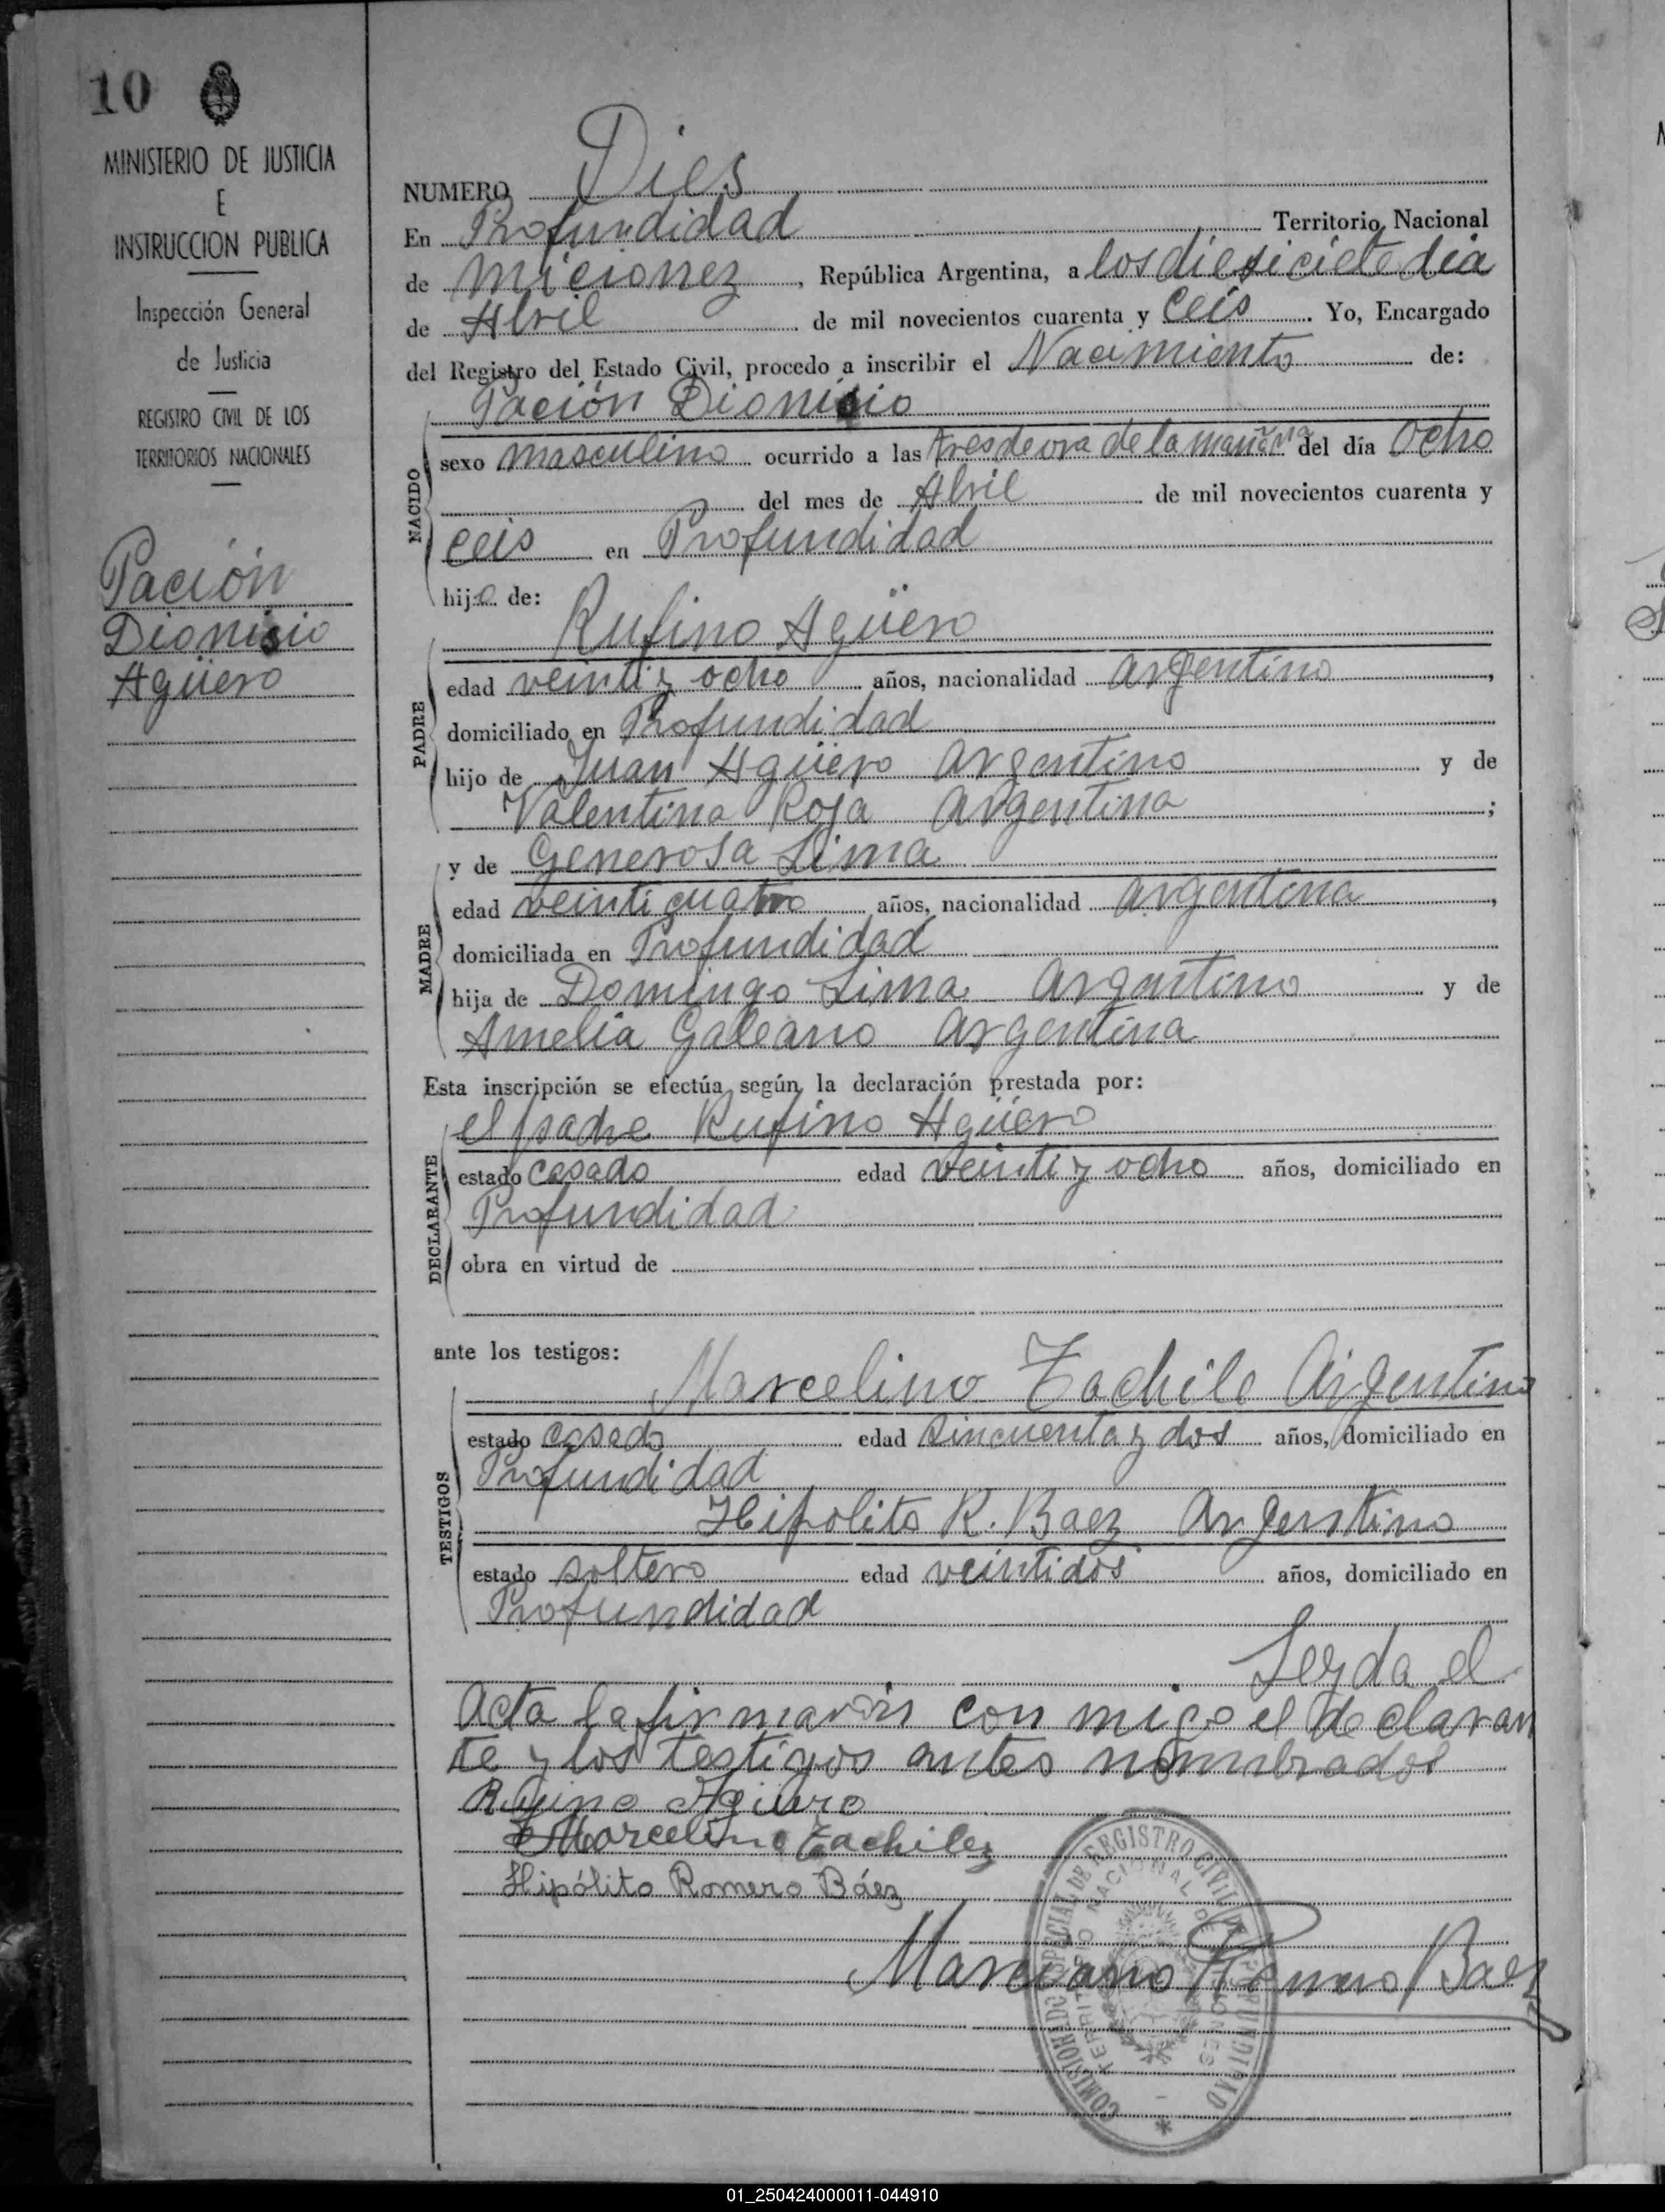 10
MINISTERIO DE JUSTICIA
E
INSTRUCCION PUBLICA
Inspección General
de Justicia
REGISTRO CIVIL DE LOS
TERRITORIOS NACIONALES
Pación
Dionisio
Agüero
NUMERO Dies
En Profundidad Territorio Nacional
de Micionez, República Argentina, a los diesiciete dia
de Abril de mil novecientos cuarenta y ceis. Yo, Encargado
del Registro del Estado Civil, procedo a inscribir el Nacimiento de:
Pación Dionisio
NACIDO
sexo masculino ocurrido a las tres de ora de la mañana del día ocho
del mes de Abril de mil novecientos cuarenta y
ceis en Profundidad
hijo de:
Rufino Agüero
PADRE
edad veinti y ocho años, nacionalidad argentino,
domiciliado en Profundidad
hijo de Juan Agüero argentino y de
Valentina Roja argentina;
y de Generosa Lima
MADRE
edad veinticuatro años, nacionalidad argentina,
domiciliada en Profundidad
hija de Domingo Lima argentino y de
Amelia Galeano argentina
Esta inscripción se efectúa según la declaración prestada por:
el padre Rufino Agüero
DECLARANTE
estado casado edad veinti y ocho años, domiciliado en
Profundidad
obra en virtud de
ante los testigos:
Marcelino Zachile Argentino
TESTIGOS
estado casado edad sincuenta y dos años, domiciliado en
Profundidad
Hipolito R. Baez Argentino
estado soltero edad veintidos años, domiciliado en
Profundidad
Leyda el
Acta la firmarón con migo el declaran
te y los testigos antes nombrados
Rufino Agüero
Marcelino Zachilez
Hipólito Romero Báez
Marciano Romero Baez
COMISIONADO ESPECIAL DE REGISTRO CIVIL DE PROFUNDIDAD
TERRITORIO NACIONAL DE MISIONES
01_250424000011-044910